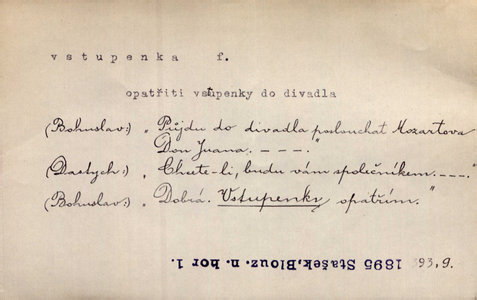 vstupenka f.
opatřiti vstupenky do divadla
(Bohuslav:) „Půjdu do divadla poslouchat Mozartova
Don Juana. — — —."
(Dastych:) „Chcete-li, budu vám společníkem. — — —."
(Bohuslav:) „Dobrá. Vstupenky opatřím."
1895 Stašek, Blouz. n. hor 1. 393,9.